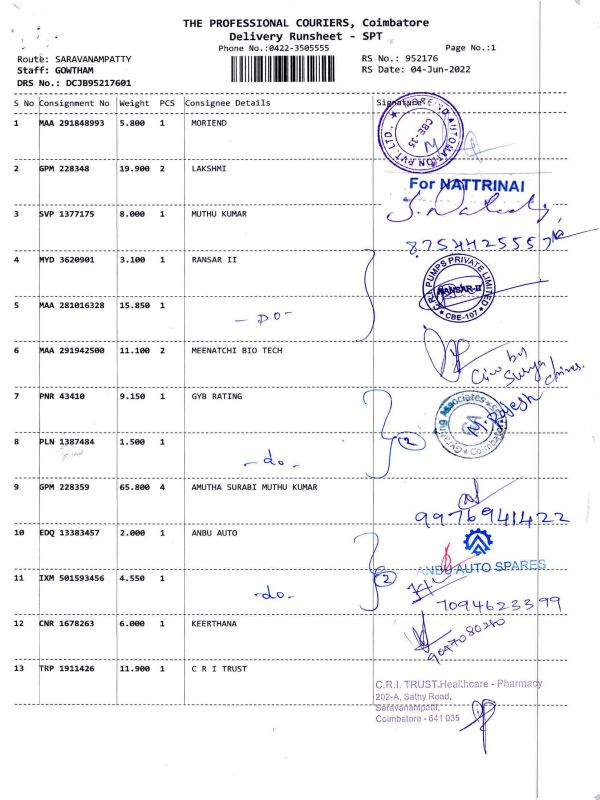 THE PROFESSIONAL COURIERS, Coimbatore
Delivery Runsheet - SPT
Phone No.:0422-3505555
Page No.:1
Route: SARAVANAMPATTY
RS No.: 952176
Staff: GOWTHAM
RS Date: 04-Jun-2022
DRS No.: DCJB95217601
S No Consignment No Weight PCS Consignee Details Signature
1 MAA 291848993 5.800 1 MORIEND
CBE-35
2 GPM 228348 19.900 2 LAKSHMI
For NATTRINAI
3 SVP 1377175 8.000 1 MUTHU KUMAR
8754425557
4 MYD 3620901 3.100 1 RANSAR II
C.R.I PUMPS PRIVATE LIMITED
RANSAR-II
CBE-107
5 MAA 281016328 15.850 1
- DO -
6 MAA 291942500 11.100 2 MEENATCHI BIO TECH
7 PNR 43410 9.150 1 GYB RATING
N. Rajesh
2
8 PLN 1387484 1.500 1
- do -
9 GPM 228359 65.800 4 AMUTHA SURABI MUTHU KUMAR
9976941422
10 EDQ 13383457 2.000 1 ANBU AUTO
ANBU AUTO SPARES
2
11 IXM 501593456 4.550 1
- do -
7094623399
12 CNR 1678263 6.000 1 KEERTHANA
9047080240
13 TRP 1911426 11.900 1 C R I TRUST
C.R.I. TRUST.Healthcare - Pharmacy
202-A, Sathy Road,
Saravanampatti,
Coimbatore - 641 035